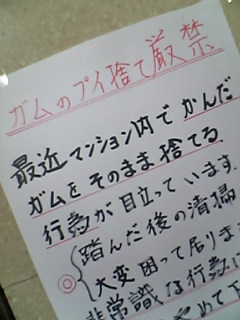 ガムのプイ捨て厳禁
最近マンション内でかんだ
ガムをそのまま捨てる
行為が目立っています
踏んだ後の清掃
大変困って居りま
◎
非常識な行為
めて下